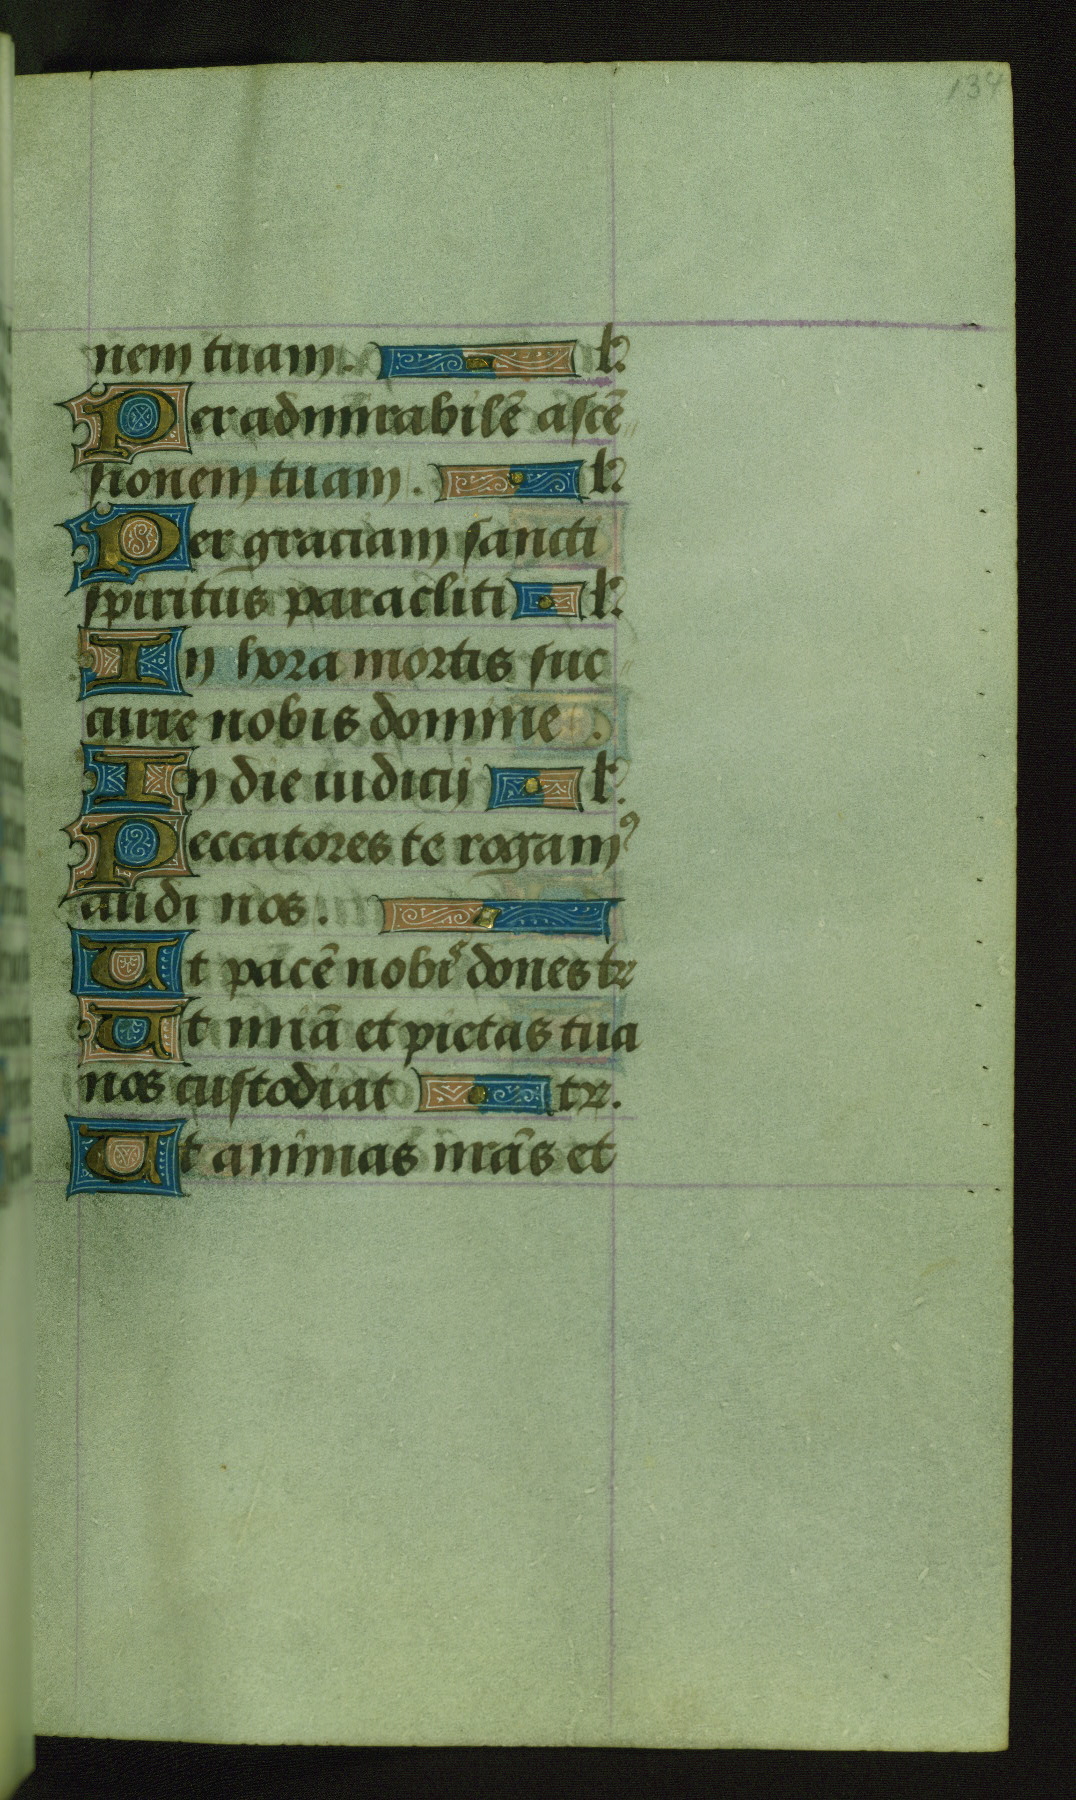 134
nem tuam. l?
Per admirabilē ascē
sionem tuam. l?
Per graciam sancti
spiritus paracliti l?
In hora mortis suc
curre nobis domine.
In die iudicij l?
Peccatores te rogamꝰ
audi nos.
Ut pacē nobis dones tr
Ut miā et pietas tua
nos custodiat tr.
Ut animas nr̄as et